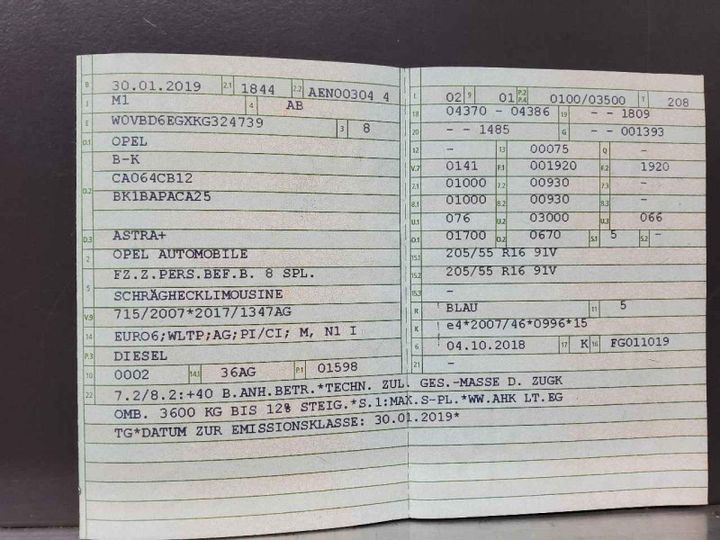 B 30.01.2019 2.1 1844 2.2 AEN00304 4
J M1 4 AB
E W0VBD6EGXKG324739 3 8
D.1 OPEL
B-K
D.2 CA064CB12
BK1BAPACA25
D.3 ASTRA+
2 OPEL AUTOMOBILE
5 FZ.Z.PERS.BEF.B. 8 SPL.
SCHRÄGHECKLIMOUSINE
V.9 715/2007*2017/1347AG
14 EURO6;WLTP;AG;PI/CI; M, N1 I
P.3 DIESEL
10 0002 14.1 36AG P.1 01598
22 7.2/8.2:+40 B.ANH.BETR.*TECHN. ZUL. GES.-MASSE D. ZUGK
OMB. 3600 KG BIS 12% STEIG.*S.1:MAX.S-PL.*WW.AHK LT.EG
TG*DATUM ZUR EMISSIONSKLASSE: 30.01.2019*
L 02 9 01 P.2 P.4 0100/03500 T 208
18 04370 - 04386 19 - - 1809
20 - - 1485 G - - 001393
12 - 13 00075 Q -
V.7 0141 F.1 001920 F.2 1920
7.1 01000 7.2 00930 7.3 -
8.1 01000 8.2 00930 8.3 -
U.1 076 U.2 03000 U.3 066
O.1 01700 O.2 0670 S.1 5 S.2 -
15.1 205/55 R16 91V
15.2 205/55 R16 91V
15.3 -
R BLAU 11 5
K e4*2007/46*0996*15
6 04.10.2018 17 K 16 FG011019
21 -